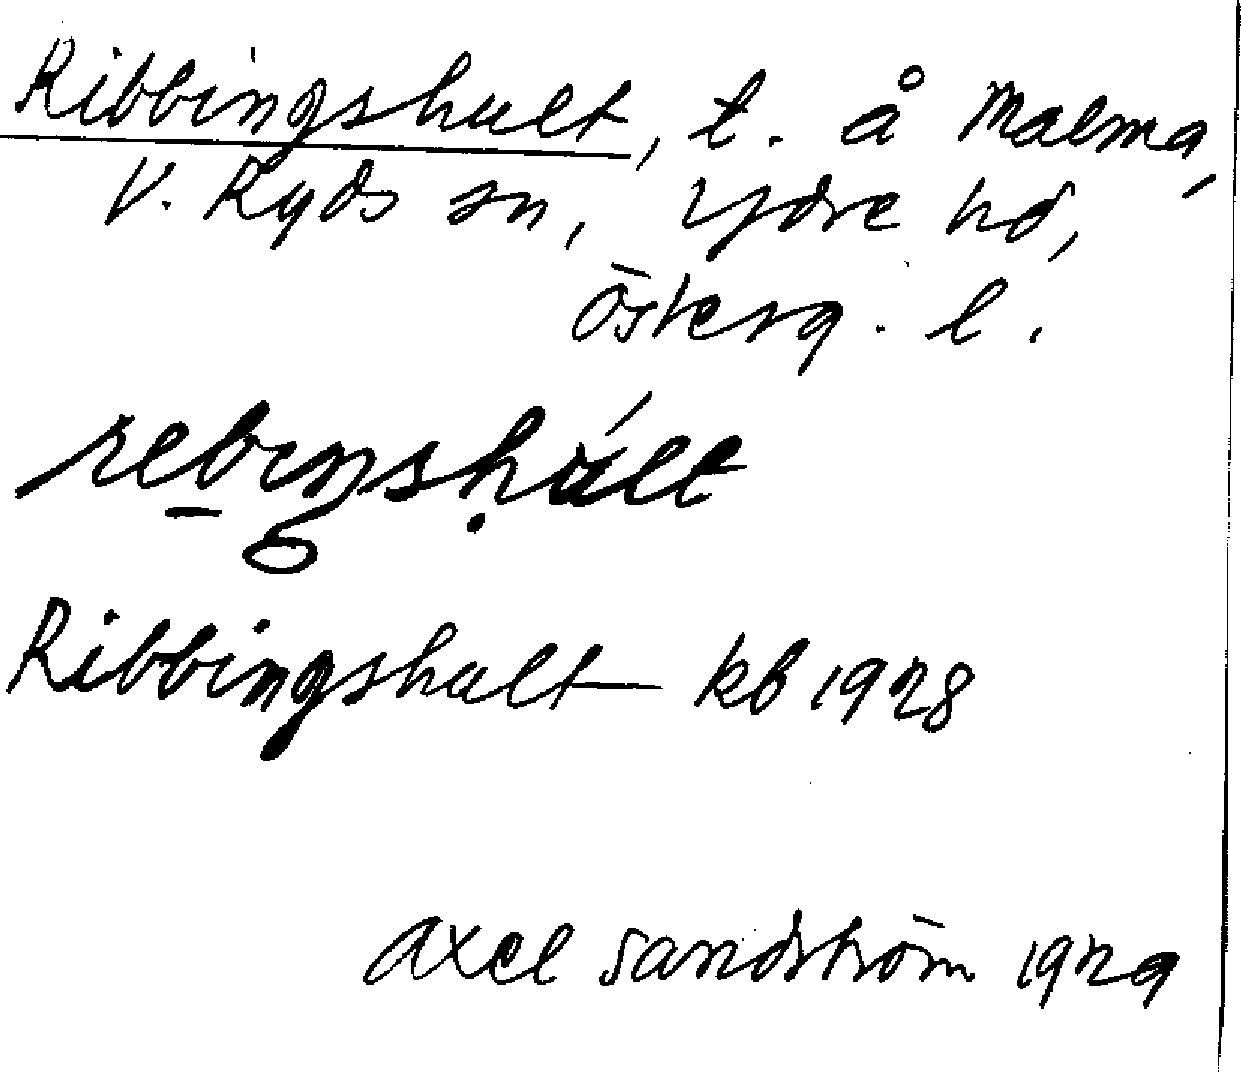 Ribbingshult, t. å Malma,
V. Ryds sn, Ydre hd,
Österg. l.
Ribbingshult kb 1928
Axel Sandström 1929